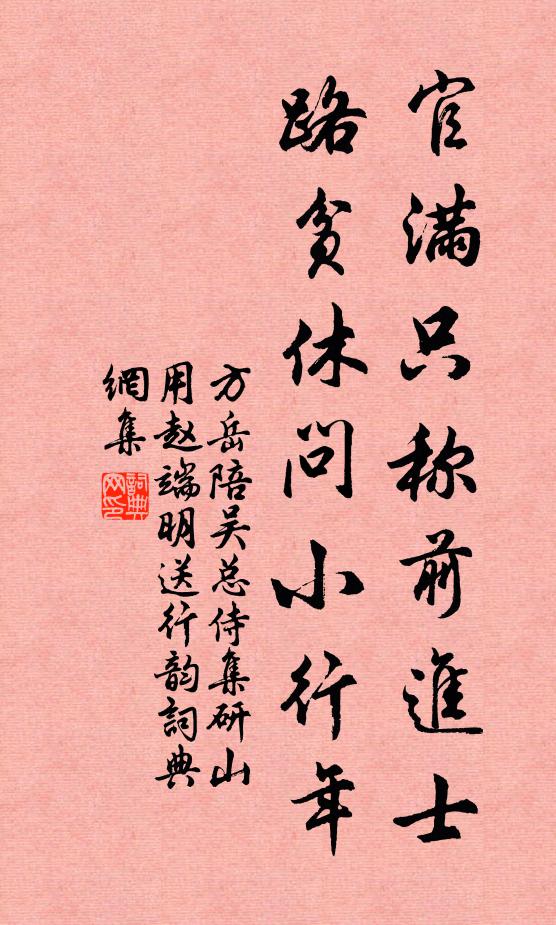 官满只称前進士
路贫休问小行年
方岳陪吴总侍集研山
用赵端明送行韵詞典
網集
詞典網印